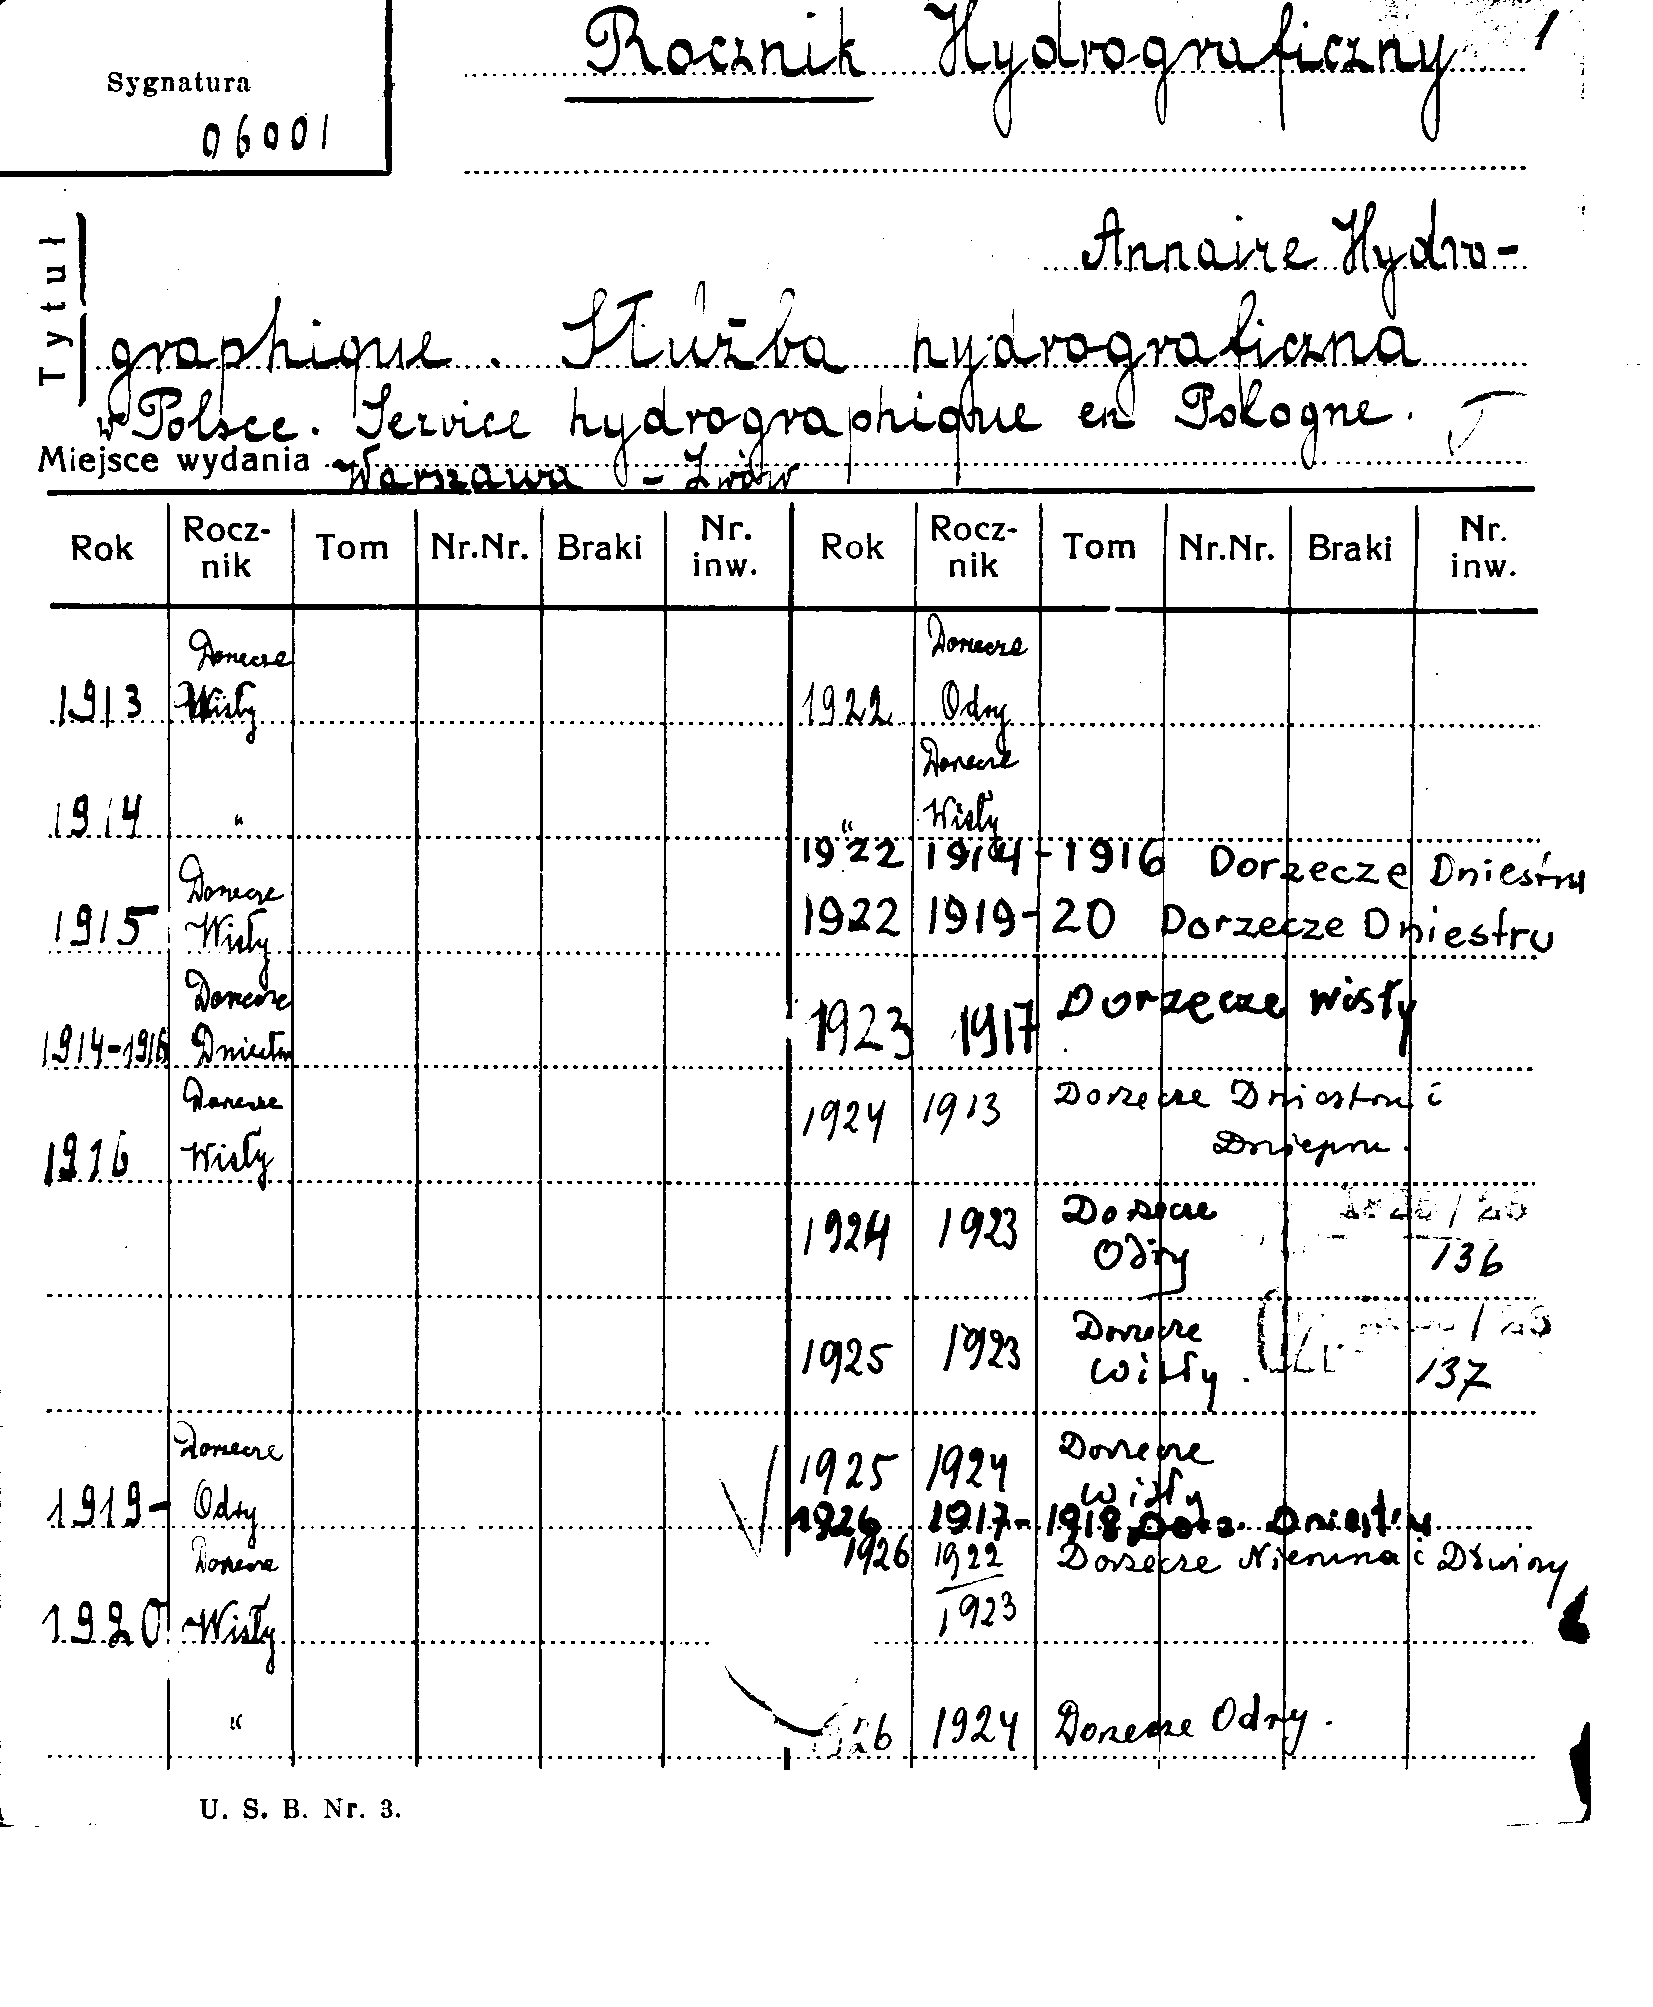 Rocznik Hydrograficzny 1
Sygnatura
06001
Tytuł
Annaire Hydro-
graphique. Służba hydrograficzna
w Polsce. Service hydrographique en Pologne.
Miejsce wydania Warszawa - Lwów
Rok Rocz-nik Tom Nr.Nr. Braki Nr. inw. Rok Rocz-nik Tom Nr.Nr. Braki Nr. inw.
Dorzecze
1913 Wisły
1914 "
Dorzecze
1915 Wisły
Dorzecze
1914-1916 Dniestru
Dorzecze
1916 Wisły
Dorzecze
1919- Odry
Dorzecze
1920 Wisły
"
Dorzecze
1922 Odry
Dorzecze
" Wisły
1922 1914-1916 Dorzecze Dniestru
1922 1919-20 Dorzecze Dniestru
1923 1917 Dorzecze Wisły
1924 1913 Dorzecze Dniestru i
Dniepru.
1924 1923 Dorzecze
Odry 136
1925 1923 Dorzecze
Wisły. 137
1925 1924 Dorzecze
Wisły
1926 1917-1918 Dorz. Dniestru
1926 1922 Dorzecze Niemna i Dźwiny
1923
1926 1924 Dorzecze Odry.
U. S. B. Nr. 3.